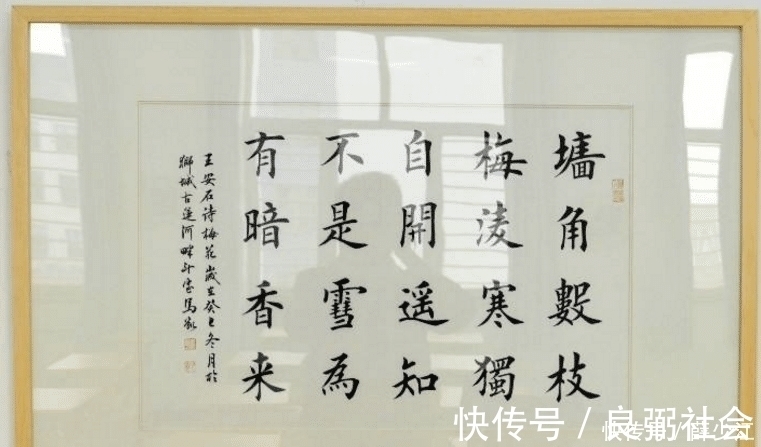 墻角數枝
梅淩寒獨
自開遥知
不是雪為
有暗香来
王安石诗梅花歲在癸巳冬月於
聊城古運河畔斗室馬
快传号 / 良弼社会